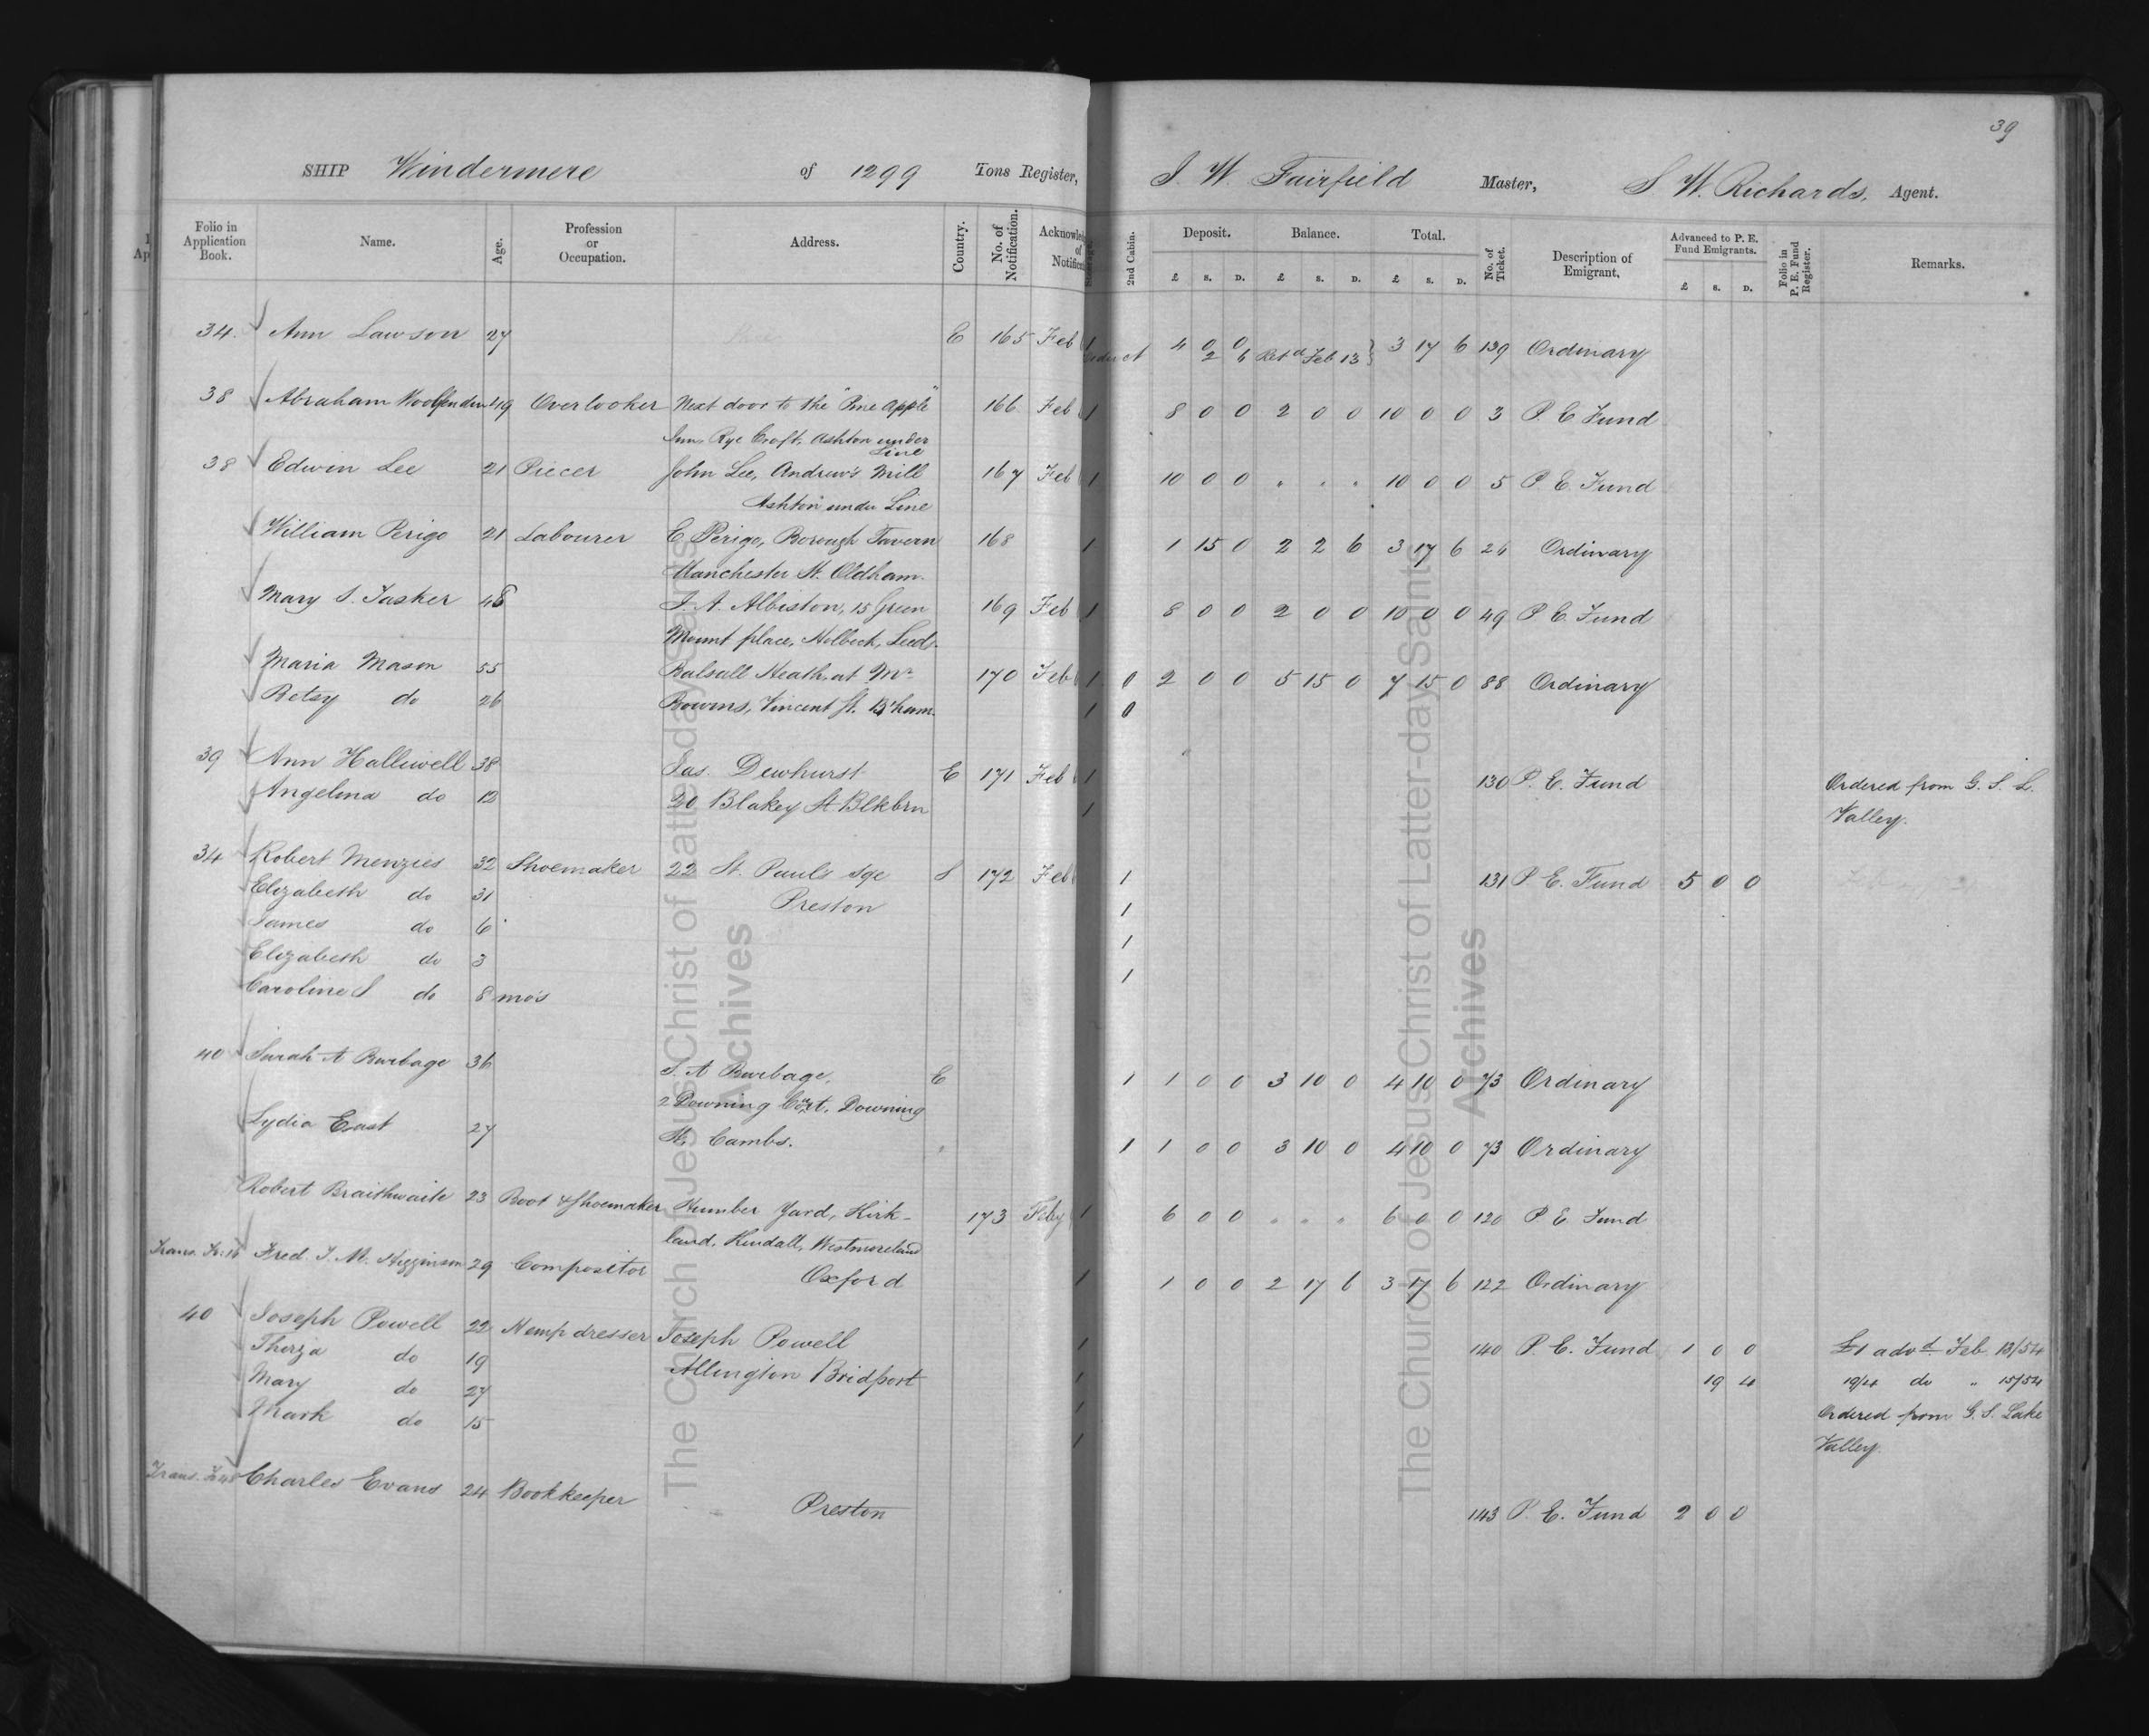 39
SHIP Windermere of 1299 Tons Register, J. W. Fairfield Master, S W. Richards, Agent.
Folio in Application Book. Name. Age. Profession or Occupation. Address. Country. No. of Notification. 2nd Cabin. Deposit. Balance. Total. No. of Ticket. Description of Emigrant. Advanced to P. E. Fund Emigrants. Folio in P. E. Fund Register. Remarks.
£ S. D. £ S. D. £ S. D. £ S. D.
34. Ann Lawson 27 E 165 Feb 1 4 0 0 3 17 6 139 Ordinary
2 6 Retd Feb 13
38 Abraham Woolfenden 19 Overlooker Next door to the "Pine Apple" 166 Feb 1 8 0 0 2 0 0 10 0 0 3 P. E Fund
Inn, Rye Croft, Ashton under Line
38 Edwin Lee 21 Piecer John Lee, Andrew's Mill 167 Feb 1 10 0 0 . . . 10 0 0 5 P. E. Fund
Ashton under Line
William Perigo 21 Labourer E Perigo, Borough Tavern 168 1 1 15 0 2 2 6 3 17 6 26 Ordinary
Manchester St. Oldham.
Mary S. Tasker 48 J. A. Albiston, 15 Green 169 Feb 1 8 0 0 2 0 0 10 0 0 49 P E. Fund
Mount place, Holbeck, Leeds.
Maria Mason 55 Balsall Heath, at Mr 170 Feb 1 0 2 0 0 5 15 0 7 15 0 88 Ordinary
Betsy do 26 Bowens, Vincent St. B'ham. 1 0
39 Ann Halliwell 38 Jas. Dewhurst E 171 Feb 1 130 P. E. Fund Ordered from G. S. L.
Angelina do 12 20 Blakey St. Blkbrn 1 Valley.
34 Robert Menzies 32 Shoemaker 22 St. Pauls Sqe S 172 Feb 1 131 P. E. Fund 5 0 0
Elizabeth do 31 Preston 1
James do 6 1
Elizabeth do 3 1
Caroline S do 8 mos
40 Sarah A Burbage 36 S. A Burbage, E 1 1 0 0 3 10 0 4 10 0 73 Ordinary
2 Downing Court, Downing
Lydia East 27 St. Cambs. 1 1 0 0 3 10 0 4 10 0 73 Ordinary
Robert Braithwaite 23 Boot & Shoemaker Humber Yard, Kirk- 173 Feby 1 6 0 0 . . . 6 0 0 120 P E. Fund
land, Kendall, Westmoreland
Trans. Fred. J. M. Higginson 29 Compositor Oxford 1 1 0 0 2 17 6 3 17 6 122 Ordinary
40 Joseph Powell 22 Hemp dresser Joseph Powell 1 140 P. E. Fund 1 0 0 £1 advd Feb 13/54
Thirza do 19 Allington Bridport 1 19 4 19/4 do " 15/54
Mary do 27 1 Ordered from G. S. Lake
Mark do 15 1 Valley.
Trans. Charles Evans 24 Bookkeeper Preston 143 P. E. Fund 2 0 0
The Church of Jesus Christ of Latter-day Saints
Archives
The Church of Jesus Christ of Latter-day Saints
Archives